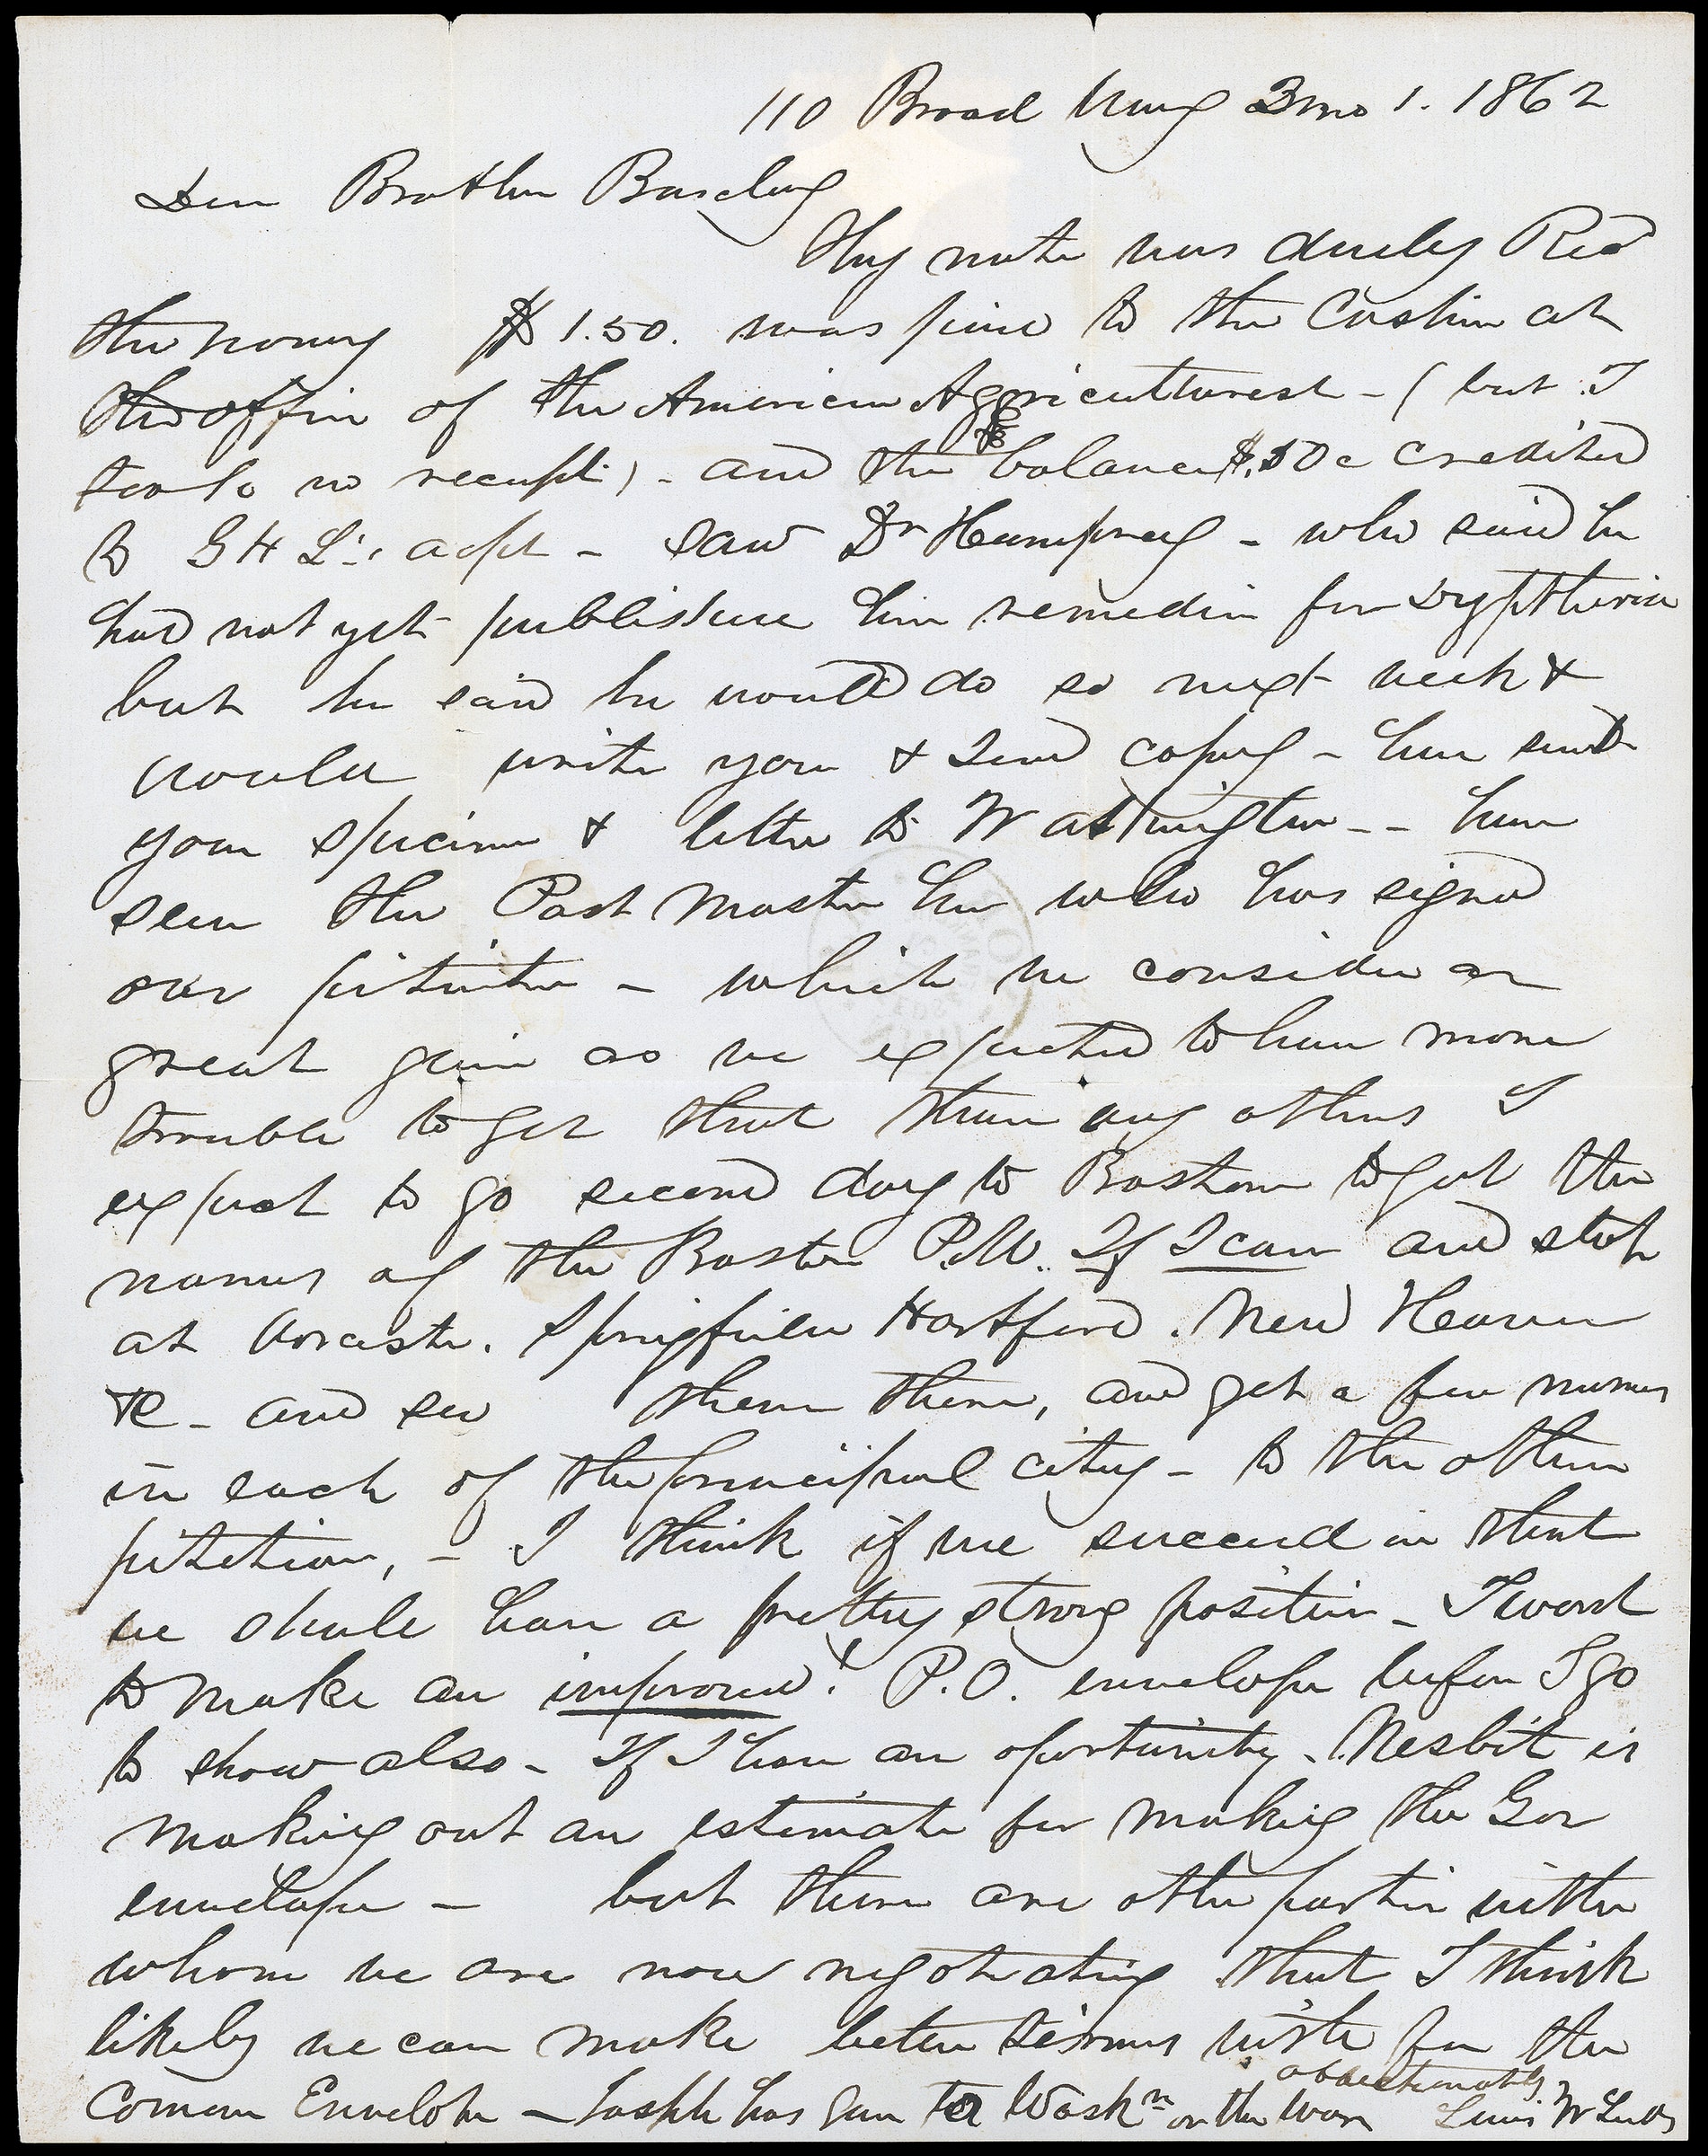 110 Broad Way 3mo 1. 1862
Dear Brother Barclay
Thy note was duely Recd
the money $1.50. was paid to the Cashier at
the office of the American Aggriculturest - (but I
took no receipt) - and the balance $.50c credited
to G H L's acpt - saw Dr Humphrey - who said he
had not yet published his remedies for Dyptheria
but he said he would do so next week &
would write you & send copy - have sent
your specimen & letter to Washington -- have
seen the Post Master here who has signed
our petition - which we consider a
great gain as we expected to have more
trouble to get that than any others I
expect to go second day to Boston to get the
names of the Boston P.M. If I can and stop
at Worcester. Springfield Hartford. New Heaven
&c - and see them there, and get a few names
in each of the principal citys - to the other
petition, - I think if we succeed in that
we shall have a pretty strong position - I want
to make an improved! P.O. envelope before I go
to show also - If I have an oportunity - Nesbit is
making out an estimate for making the Gov
envelope - but there are other parties with
whom we are now negotiating that I think
likely we can make better terms with for the
Comon Envelope - Joseph has gone to Washn on the way
affectionately
Lewis W Leeds